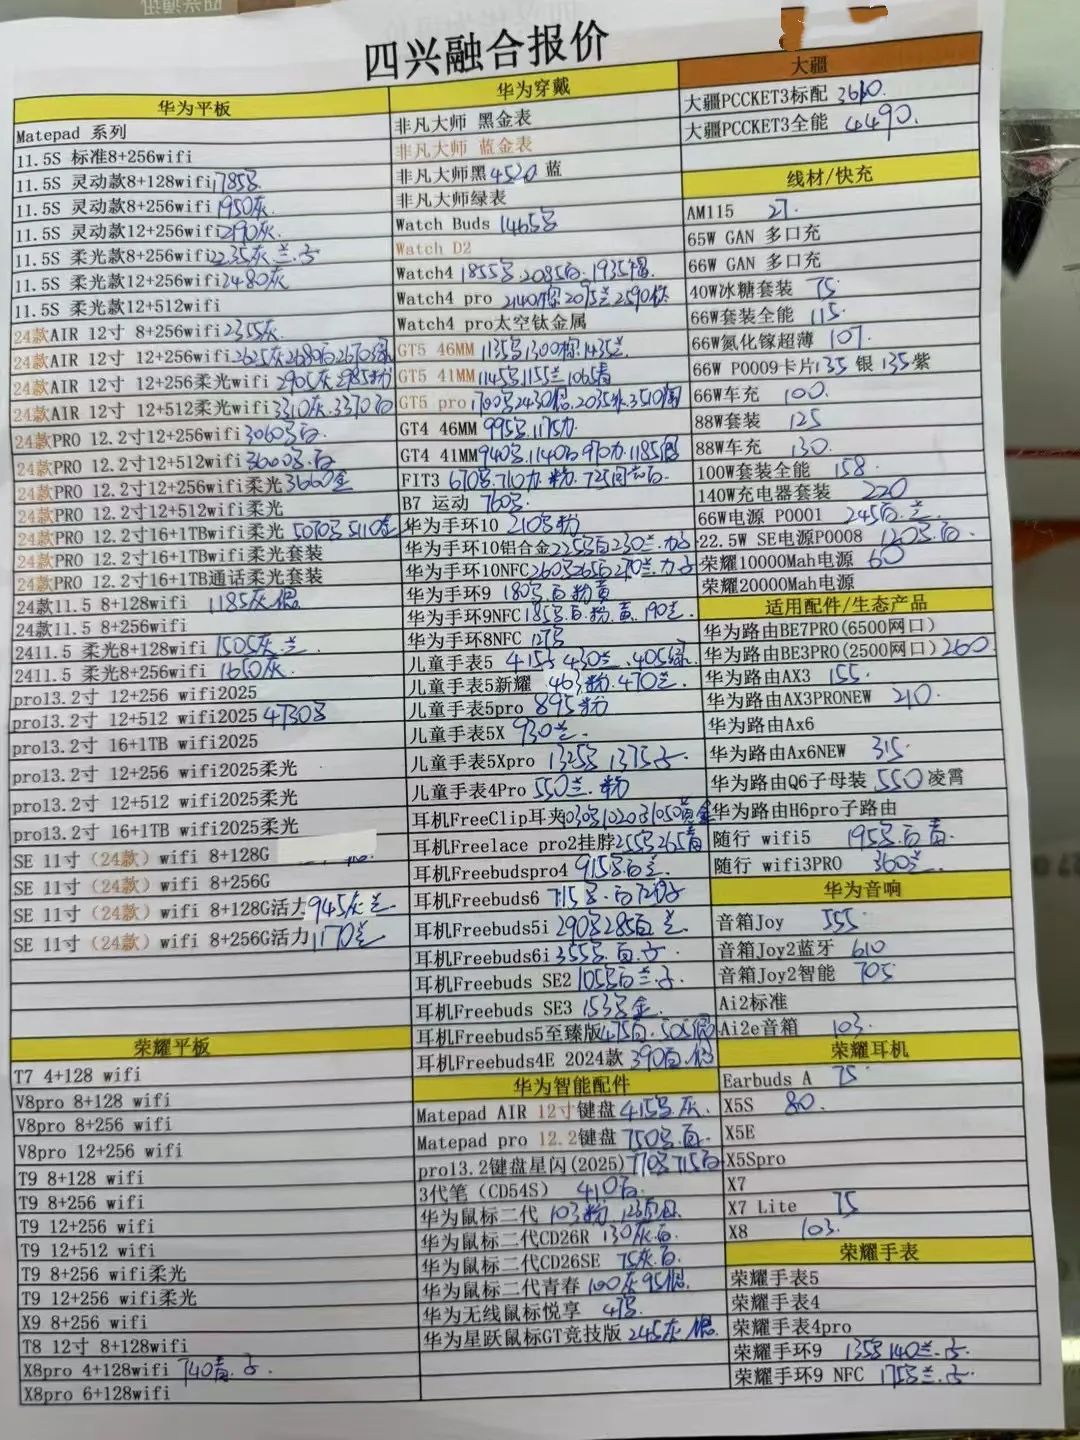 四兴融合报价
华为平板
Matepad 系列
11.5S 标准8+256wifi
11.5S 灵动款8+128wifi 1785号
11.5S 灵动款8+256wifi 1950灰
11.5S 灵动款12+256wifi 2190灰.
11.5S 柔光款8+256wifi 2235灰兰.子
11.5S 柔光款12+256wifi 2480灰
11.5S 柔光款12+512wifi
24款AIR 12寸 8+256wifi 2355灰
24款AIR 12寸 12+256wifi 2625灰2680白2670绿
24款AIR 12寸 12+256柔光wifi 2905灰2985粉
24款AIR 12寸 12+512柔光wifi 3310灰.3370白
24款PRO 12.2寸12+256wifi 3060号白
24款PRO 12.2寸12+512wifi 3600号.白
24款PRO 12.2寸12+256wifi柔光 3660金
24款PRO 12.2寸12+512wifi柔光
24款PRO 12.2寸16+1TBwifi柔光 5070号5110金
24款PRO 12.2寸16+1TBwifi柔光套装
24款PRO 12.2寸16+1TB通话柔光套装
24款11.5 8+128wifi 1185灰
24款11.5 8+256wifi
2411.5 柔光8+128wifi 1505灰.兰
2411.5 柔光8+256wifi 1650灰.
pro13.2寸 12+256 wifi2025
pro13.2寸 12+512 wifi2025 4730号
pro13.2寸 16+1TB wifi2025
pro13.2寸 12+256 wifi2025柔光
pro13.2寸 12+512 wifi2025柔光
pro13.2寸 16+1TB wifi2025柔光
SE 11寸（24款）wifi 8+128G
SE 11寸（24款）wifi 8+256G
SE 11寸（24款）wifi 8+128G活力 945灰兰
SE 11寸（24款）wifi 8+256G活力 1170兰
荣耀平板
T7 4+128 wifi
V8pro 8+128 wifi
V8pro 8+256 wifi
V8pro 12+256 wifi
T9 8+128 wifi
T9 8+256 wifi
T9 12+256 wifi
T9 12+512 wifi
T9 8+256 wifi柔光
T9 12+256 wifi柔光
X9 8+256 wifi
T8 12寸 8+128wifi
X8pro 4+128wifi 740青.子.
X8pro 6+128wifi
华为穿戴
非凡大师 黑金表
非凡大师 蓝金表
非凡大师黑 4520 蓝
非凡大师绿表
Watch Buds 1465号
Watch D2
Watch4 1855号.2085白.1935
Watch4 pro 2140棕2075兰2590钛
Watch4 pro太空钛金属
GT5 46MM 1135号1300棕.1435兰
GT5 41MM 1145号1155兰1065青
GT5 pro 1700号2430棕.2035
GT4 46MM 995号.1175力
GT4 41MM 940号.1140白970力.1185
FIT3 610号.710力.粉.725
B7 运动 760号
华为手环10 210号粉
华为手环10铝合金 225号白230兰.力子
华为手环10NFC 260号265白270兰.力子
华为手环9 180号.白粉黄
华为手环9NFC 185号.白.粉.黄.190兰
华为手环8NFC 127号
儿童手表5 415号430兰.405绿
儿童手表5新耀 463粉.470兰.
儿童手表5pro 895粉
儿童手表5X 930兰.
儿童手表5Xpro 1325号 1375子.
儿童手表4Pro 550兰.粉
耳机FreeClip耳夹 1030号1020子1050黄金
耳机Freelace pro2挂脖 255号265青
耳机Freebudspro4 915号白兰
耳机Freebuds6 715号.白
耳机Freebuds5i 290号285白 兰
耳机Freebuds6i 355号.白.子.
耳机Freebuds SE2 105号白兰.子.
耳机Freebuds SE3 153号金.
耳机Freebuds5至臻版 475白.505
耳机Freebuds4E 2024款 390白.
华为智能配件
Matepad AIR 12寸键盘 415号.灰.
Matepad pro 12.2键盘 750号.白.
pro13.2键盘星闪(2025) 770号715白
3代笔（CD54S） 410白.
华为鼠标二代 103粉.
华为鼠标二代CD26R 130灰.白.
华为鼠标二代CD26SE 75灰.白.
华为鼠标二代青春 100灰95
华为无线鼠标悦享 47号.
华为星跃鼠标GT竞技版 245灰
大疆
大疆PCCKET3标配 3610.
大疆PCCKET3全能 4490.
线材/快充
AM115 27.
65W GAN 多口充
66W GAN 多口充
40W冰糖套装 75
66W套装全能 115.
66W氮化镓超薄 107
66W P0009卡片135 银 135紫
66W车充 100.
88W套装 125
88W车充 130.
100W套装全能 158.
140W充电器套装 220
66W电源 P0001 245白.兰.
22.5W SE电源P0008 120号.白.
荣耀10000Mah电源 60
荣耀20000Mah电源
适用配件/生态产品
华为路由BE7PRO(6500网口)
华为路由BE3PRO(2500网口) 260
华为路由AX3 155.
华为路由AX3PRONEW 210.
华为路由Ax6
华为路由Ax6NEW 315.
华为路由Q6子母装 550 凌霄
华为路由H6pro子路由
随行 wifi5 195号.白青.
随行 wifi3PRO 360兰.
华为音响
音箱Joy 555
音箱Joy2蓝牙 610
音箱Joy2智能 705
Ai2标准
Ai2e音箱 103.
荣耀耳机
Earbuds A 75
X5S 80.
X5E
X5Spro
X7
X7 Lite 75
X8 103.
荣耀手表
荣耀手表5
荣耀手表4
荣耀手表4pro
荣耀手环9 135号140兰.子.
荣耀手环9 NFC 175号兰.子.